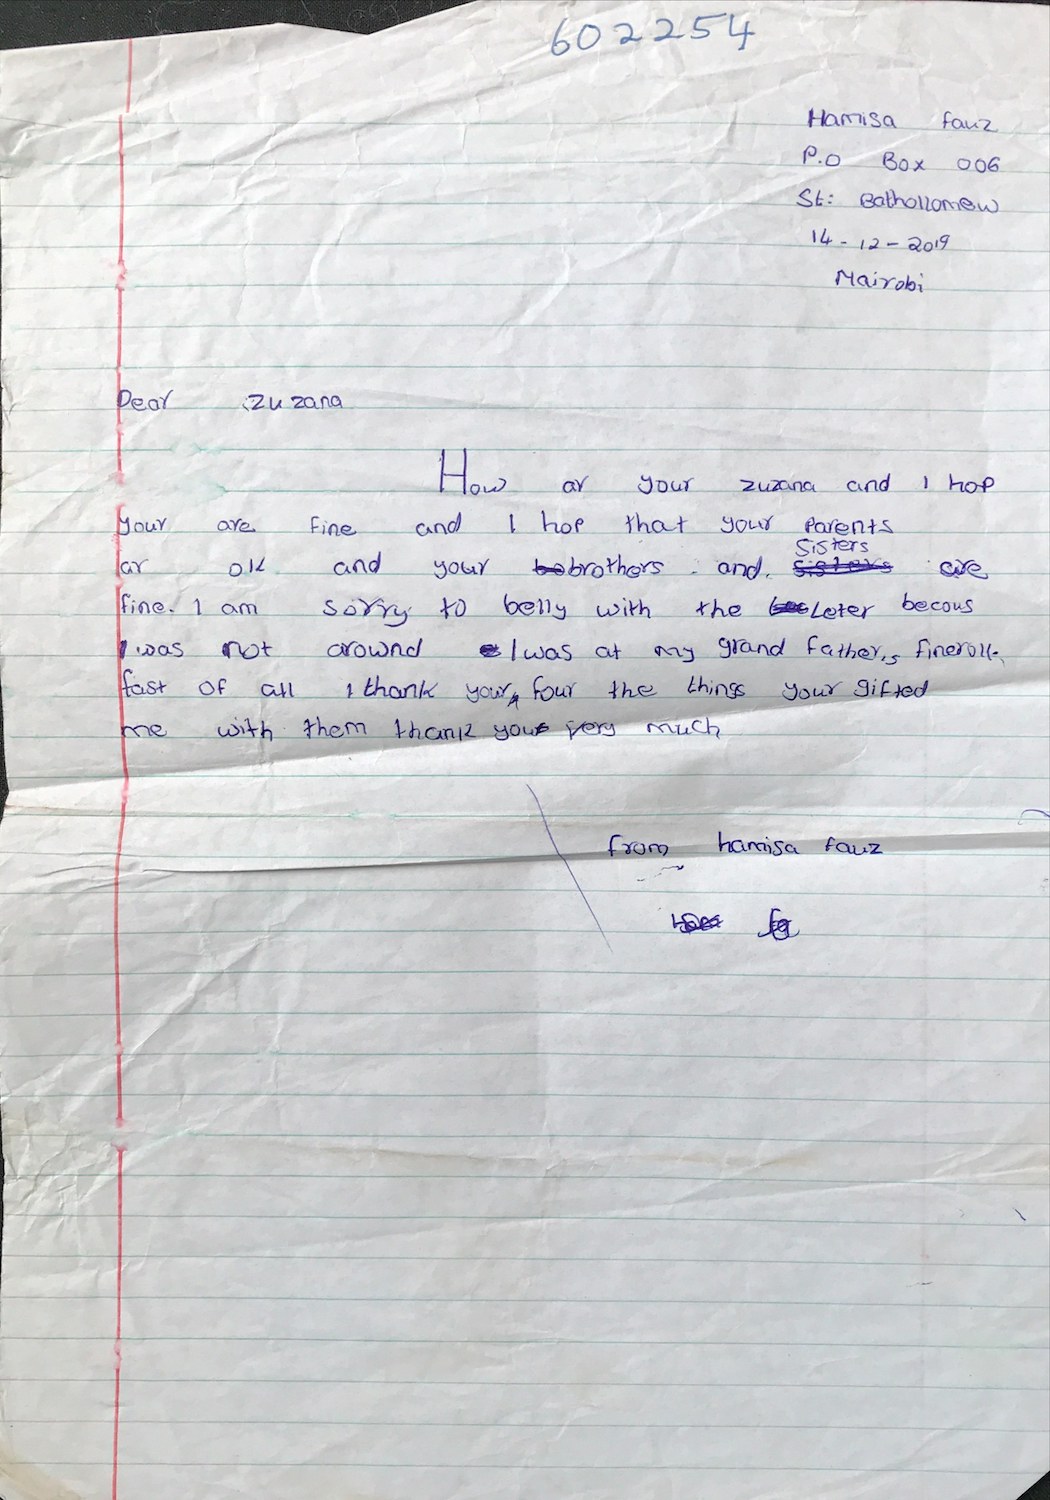 602254
Hamisa fauz
P.O Box 006
St: Bathollomew
14-12-2019
Nairobi
Dear Zuzana
How ar your zuzana and I hop
your are fine and I hop that your parents
ar ok and your brothers and sisters are
fine. I am sorry to belly with the Leter becous
I was not arownd I was at my grand father,s fineroll.
fast of all I thank your four the things your gifted
me with them thank you very much
from hamisa fauz